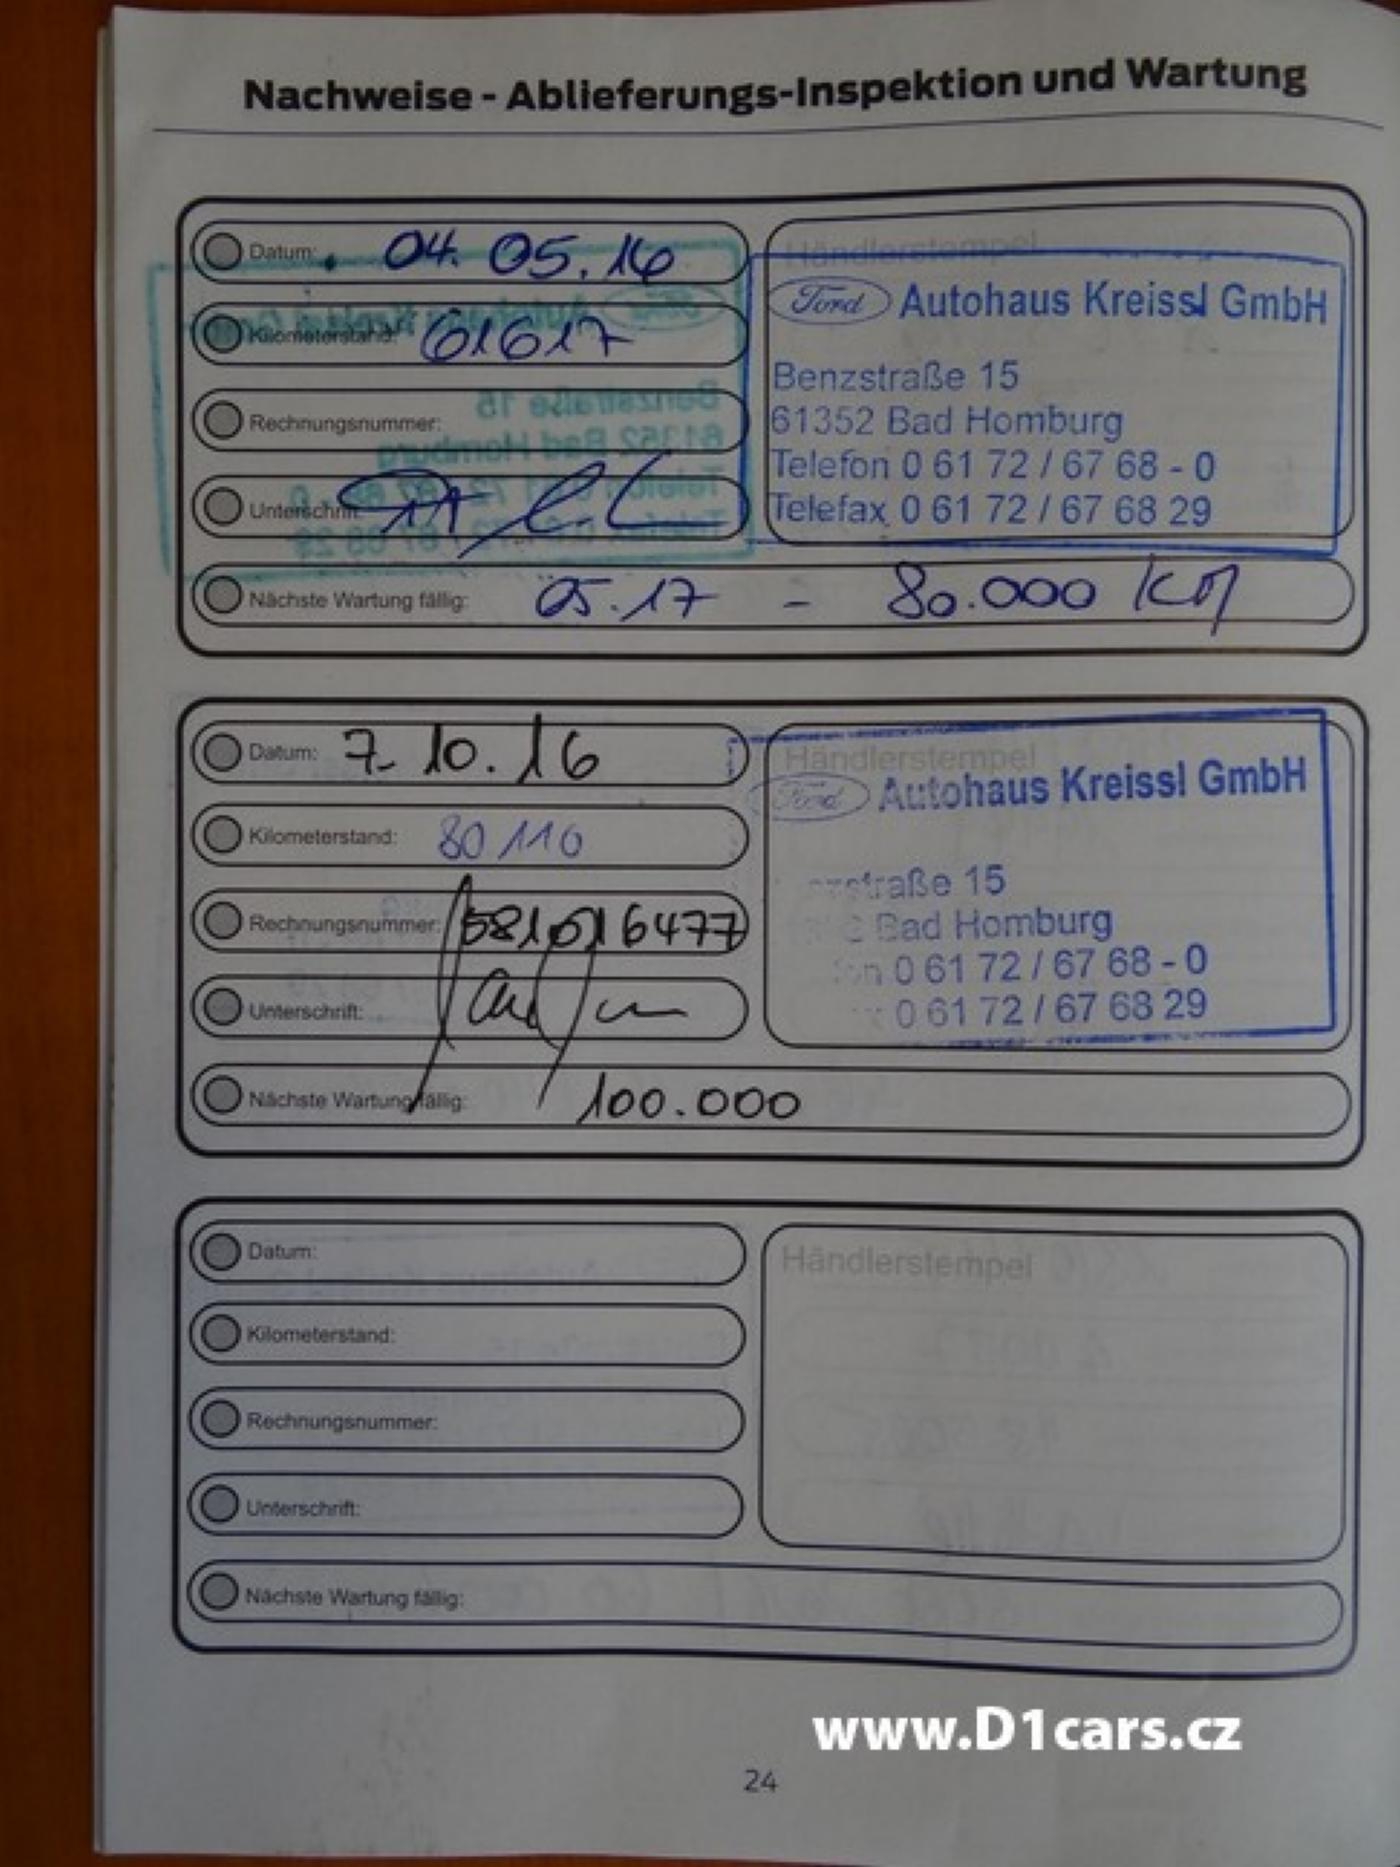 Nachweise - Ablieferungs-Inspektion und Wartung
Datum: 04.05.16
Kilometerstand: 61617
Rechnungsnummer:
Unterschrift:
Händlerstempel
Ford Autohaus Kreissl GmbH
Benzstraße 15
61352 Bad Homburg
Telefon 0 61 72 / 67 68 - 0
Telefax 0 61 72 / 67 68 29
Nächste Wartung fällig: 05.17 - 80.000 KM
Datum: 7.10.16
Kilometerstand: 80110
Rechnungsnummer:
Unterschrift:
Händlerstempel
Ford Autohaus Kreissl GmbH
straße 15
Bad Homburg
0 61 72 / 67 68 - 0
0 61 72 / 67 68 29
Nächste Wartung fällig: 100.000
Datum:
Kilometerstand:
Rechnungsnummer:
Unterschrift:
Händlerstempel
Nächste Wartung fällig:
www.D1cars.cz
24